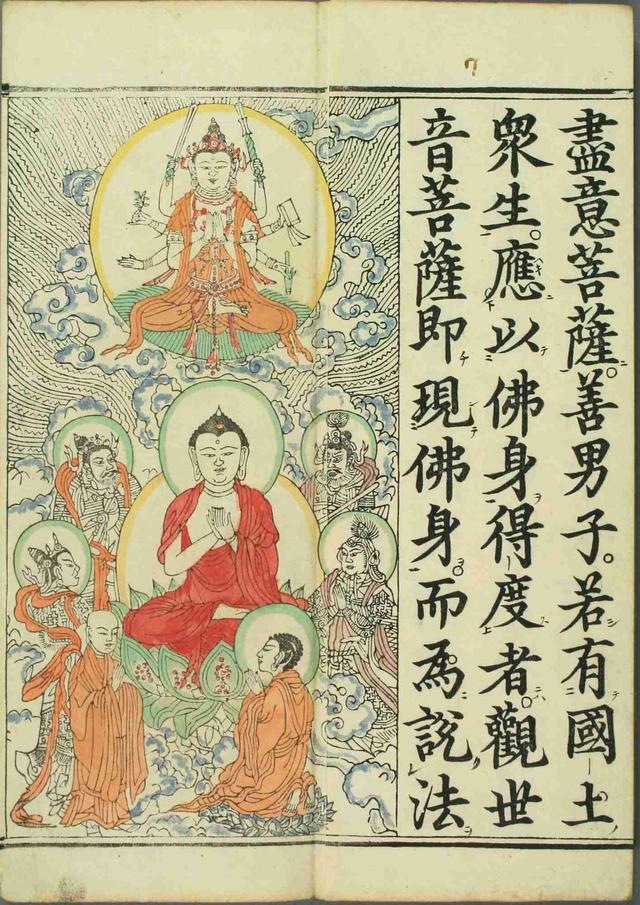 盡意菩薩。善男子。若有國土
衆生。應以佛身得度者。觀世
音菩薩即現佛身而為說法